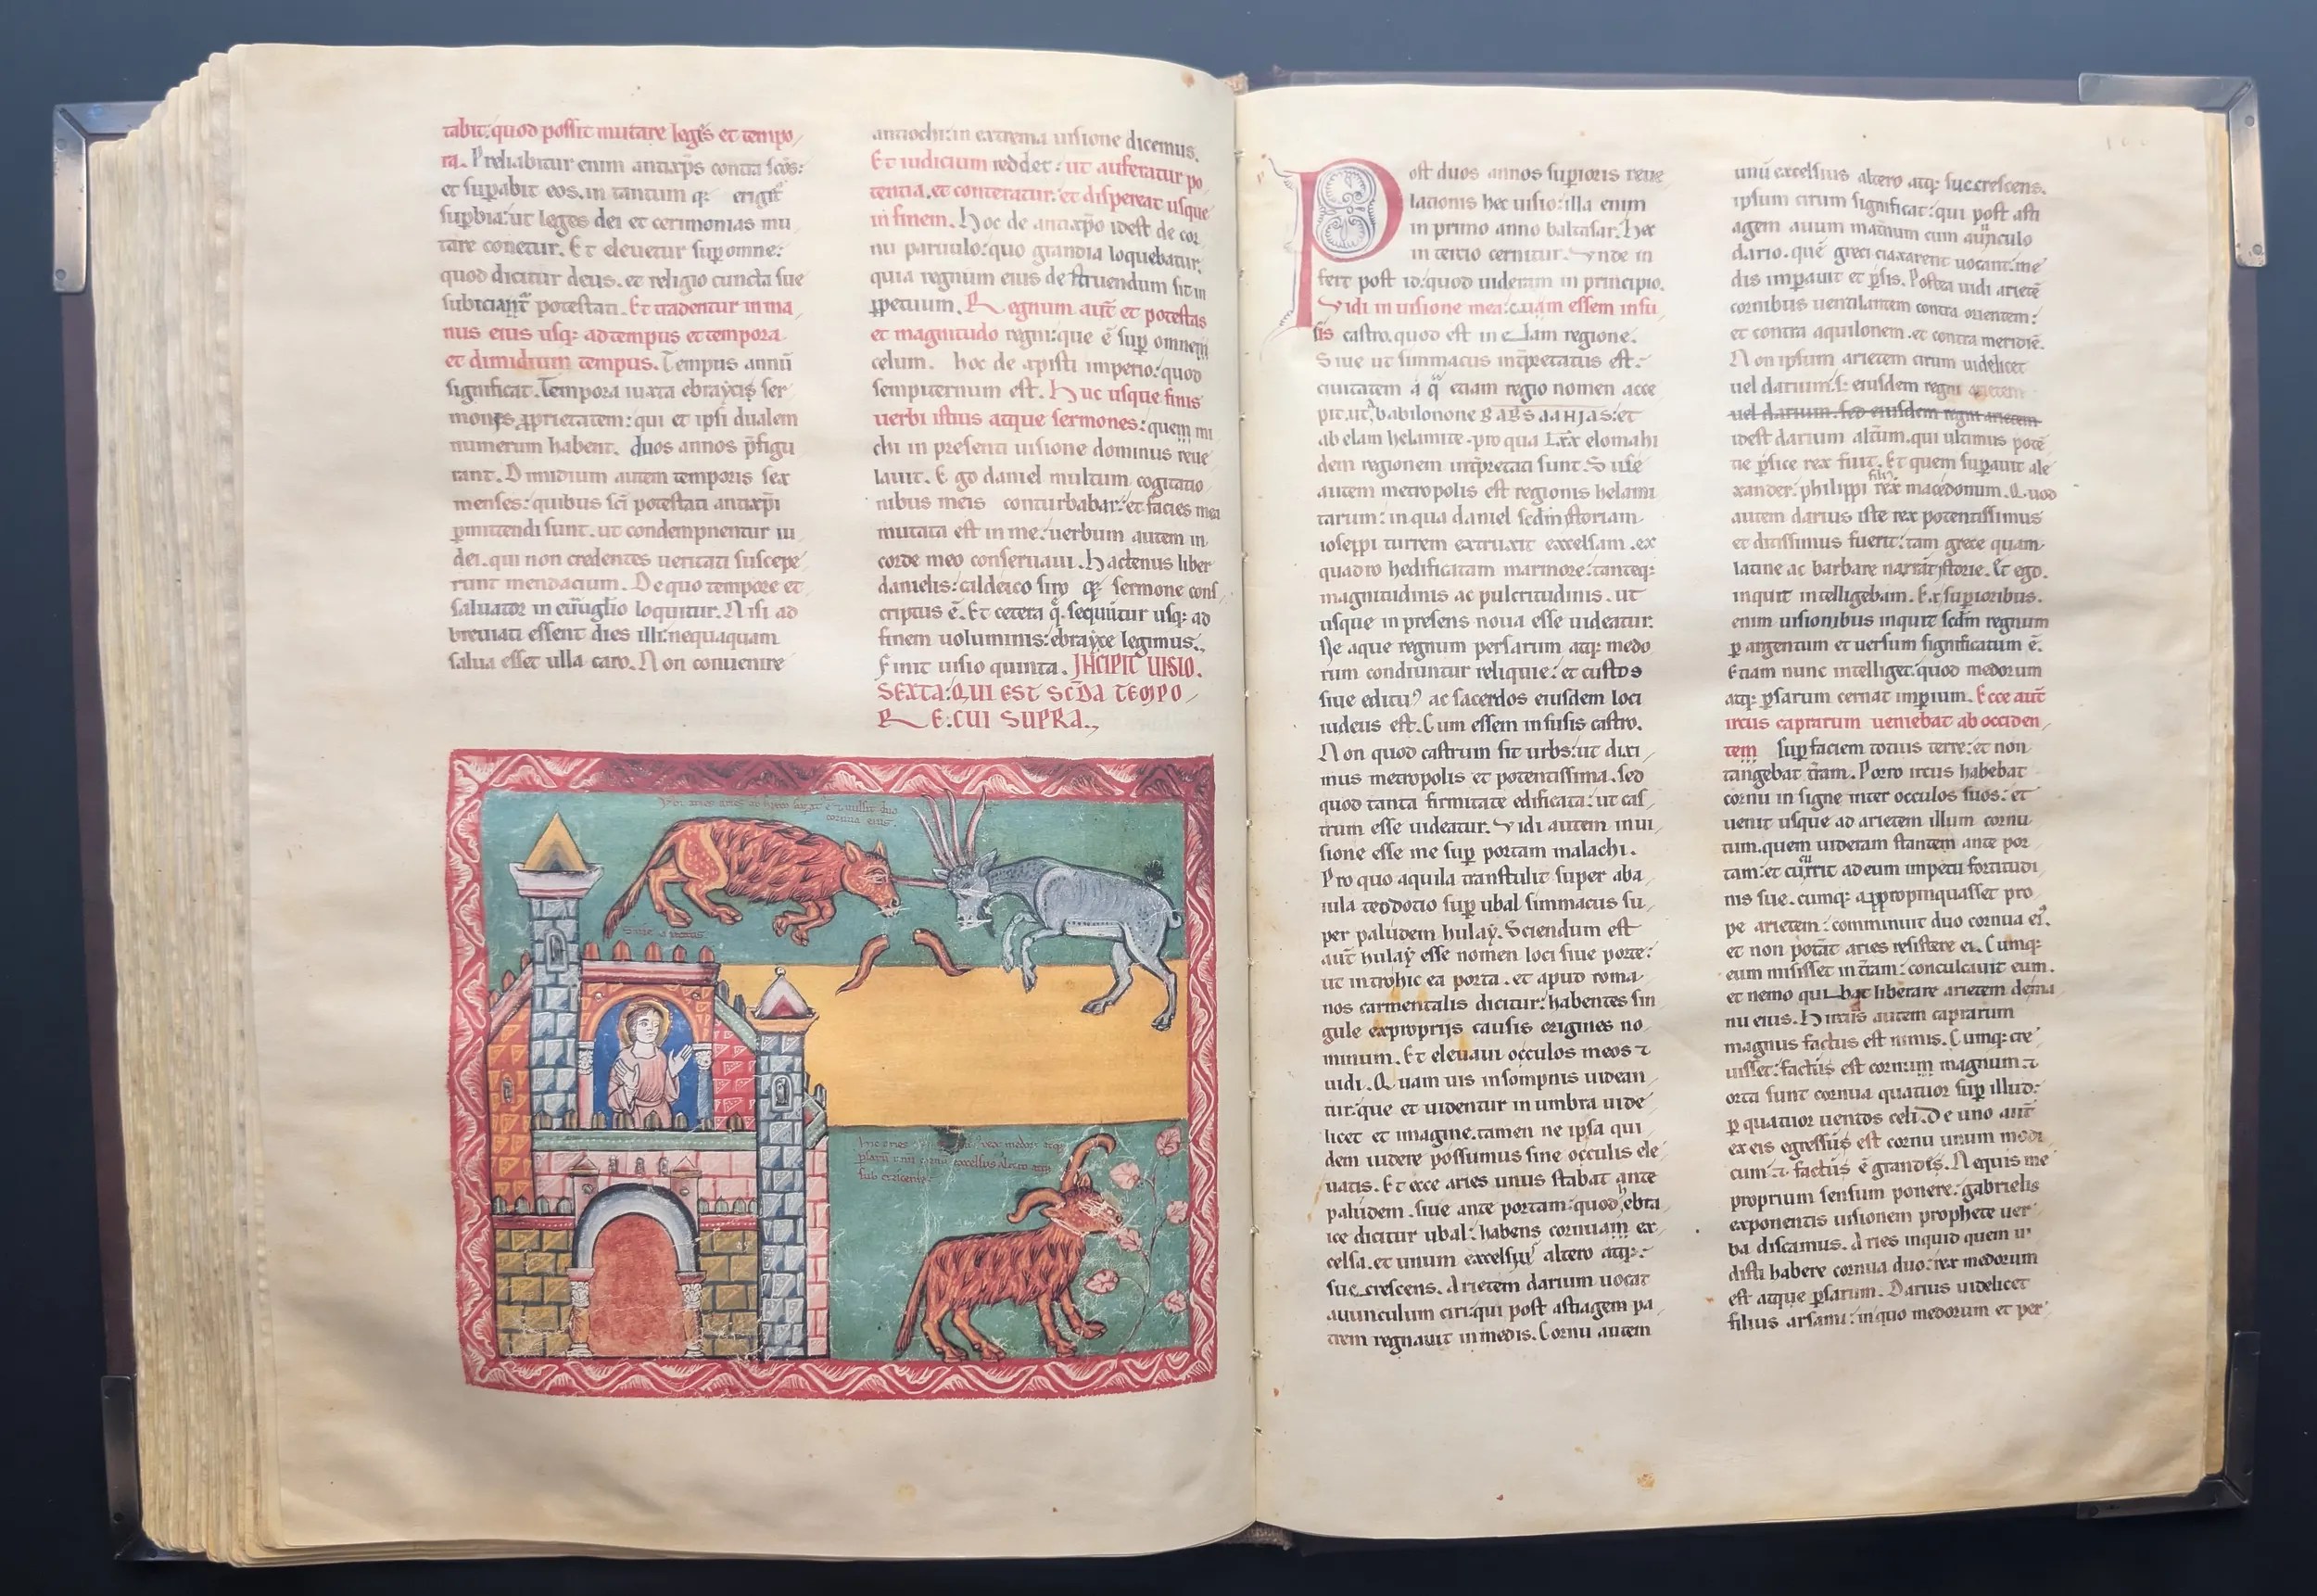 tabit: quod possit mutare leges et tempo
ra. Preliabitur enim antixp̄s contra sc̄os:
et sup̱abit eos. in tantum q: erigit
sup̱bia: ut leges dei et cerimonias mu
tare conetur. Et eleuetur sup̱ omne:
quod dicitur deus. et religio cuncta sue
subiciant potestati. Et tradentur in ma
nus eius usq: ad tempus et tempora
et dimidium tempus. Tempus annū
significat. Tempora iuxta ebraycis ser
mones p̱prietatem: qui et ipsi dualem
numerum habent. duos annos p̄figu
rant. Dimidium autem temporis sex
menses: quibus sc̄i potestati antixp̄i
p̱mittendi sunt. ut condempnentur iu
dei. qui non credentes ueritati suscepe
runt mendacium. De quo tempore et
saluator in euūglio loquitur. Nisi ad
breuiati essent dies illi: nequaquam
salua esset ulla caro. Non conuenire
antiochi: in extrema uisione dicemus.
Et iudicium reddet: ut auferatur po
tentia. et conteratur: et dispereat usque
in finem. Hoc de antixp̄o idest de cor
nu paruulo: quo grandia loquebatur.
quia regnum eius destruendum sit in
p̱petuum. Regnum aut̄ et potestas
et magnitudo regni: que ē sup̱ omnem
celum. hoc de xpisti imperio: quod
sempiternum est. Huc usque finis
uerbi istius atque sermones: quem mi
chi in presenti uisione dominus reue
lauit. Ego daniel multum cogitatio
nibus meis conturbabar: et facies mea
mutata est in me: uerbum autem in
corde meo conseruaui. Hactenus liber
danielis: caldeico siro q: sermone cons
criptus ē. Et cetera q̄. sequitur usq: ad
finem uoluminis: ebrayce legimus.
Finit uisio quinta. INCIPIT UISIO.
SEXTA: QUI EST SCD̄A TEMPO
RE: CUI SUPRA.
duo
cornua eius
excelsus
Post duos annos sup̱ioris reue
lationis hec uisio: illa enim
in primo anno baltasar. Hec
in tercio cernitur. Unde in
fert post id: quod uideram in principio.
Uidi in uisione mea: cum essem in su
sis castro. quod est in elam regione.
Siue ut simmacus int̄pretatus est:
ciuitatem a q̄ etiam regio nomen acce
pit. ut babilonone
ab elam helamite. pro qua Lxx elomahi
dem regionem int̄pretati sunt. Suse
autem metropolis est regionis helami
tarum: in qua daniel scdm storiam
ioseppi turrem extruxit excelsam. ex
quadro hedificatam marmore: tanteq:
magnitudinis ac pulcritudinis. ut
usque in presens noua esse uideatur.
Ne aque regnum persarum atq: medo
rum condiuntur reliquie: et custos
siue editu⁹ ac sacerdos eiusdem loci
iudeus est. Cum essem in susis castro.
Non quod castrum sit urbs: ut dixi
mus metropolis et potentissima. sed
quod tanta firmitate edificata: ut cas
trum esse uideatur. Uidi autem in ui
sione esse me sup̱ portam malachi.
Pro quo aquila transtulit super aba
iula teodotio sup̱ ubal simmacus su
per paludem hulay. Sciendum est
aut̄ hulay esse nomen loci siue porte:
ut in trohic ea porta. et apud roma
nos carmentalis dicitur: habentes sin
gule ex proprijs causis origines no
minum. Et eleuaui occulos meos ⁊
uidi. Quam uis in sompnis uidean
tur: que et uidentur in umbra uide
licet et imagine. tamen ne ipsa qui
dem uidere possumus sine occulis ele
uatis. Et ecce aries unus stabat ante
paludem. siue ante portam: quod hebra
ice dicitur ubal: habens cornuam ex
celsa. et unum excelsiu altero atq:
suc crescens. Arietem darium uocat
auunculum ciri: qui post astiagem pa
trem regnauit in medis. Cornu autem
unū excelsius altero atq: succrescens.
ipsum cirum significat: qui post asti
agem auum mat̄num cum auunculo
dario. quē greci ciaxarent uocant: me
dis imp̱auit et p̱sis. Postea uidi arietē
cornibus uentilantem contra orientem:
et contra aquilonem. et contra meridiē.
Non ipsum arietem cirum uidelicet
uel darium. s: eiusdem regni arietem
uel darium. sed eiusdem regni arietem
idest darium alt̄um. qui ultimus potē
tie p̱sice rex fuit. Et quem sup̱auit ale
xander: philippi rex filiˢ macedonum. Quod
autem darius iste rex potentissimus
et ditissimus fuerit: tam grece quam
latine ac barbare narrat storie. Et ego.
inquit intelligebam. Ex sup̱ioribus.
enim uisionibus inquit scdm regnum
p̱ argentum et uersum significatum ē.
Etiam nunc intelliget: quod medorum
atq: p̱sarum cernat imp̱ium. Ecce aut̄
ircus caprarum ueniebat ab occiden
tem sup̱ faciem totius terre: et non
tangebat t̄ram. Porro ircus habebat
cornu in signe inter occulos suos: et
uenit usque ad arietem illum cornu
tum. quem uideram stantem ante por
tam: et cucurrit ad eum impetu fortitudi
nis sue. cumq: appropinquasset pro
pe arietem: comminuit duo cornua ei⁹.
et non potāt aries resistere ei. Cumq:
eum misisset in t̄ram: conculcauit eum.
et nemo quibat liberare arietem dema
nu eius. Hircus autem caprarum
magnus factus est nimis. Cumq: cre
uisset: factus est cornum magnum ⁊
orta sunt cornua quatuor sup̱ illud:
p̱ quatuor uentos celi. De uno aut̄
ex eis egressus est cornu unum modi
cum ⁊ factus ē grandis. Nequis me
proprium sensum ponere: gabrielis
exponentis uisionem prophete uer
ba discamus. Aries inquid quem ui
disti habere cornua duo: rex medorum
est atque p̱sarum. Darius uidelicet
filius arsami: in quo medorum et per